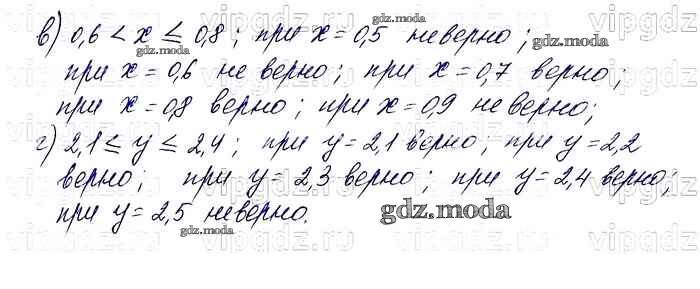 в) 0,6 < x ≤ 0,8; при x = 0,5 неверно;
при x = 0,6 не верно; при x = 0,7 верно;
при x = 0,8 верно; при x = 0,9 неверно;
г) 2,1 ≤ y ≤ 2,4; при y = 2,1 верно; при y = 2,2
верно; при y = 2,3 верно; при y = 2,4 верно;
при y = 2,5 неверно.
gdz.moda
gdz.moda
gdz.moda
gdz.moda
gdz.moda
gdz.moda
vipgdz.ru